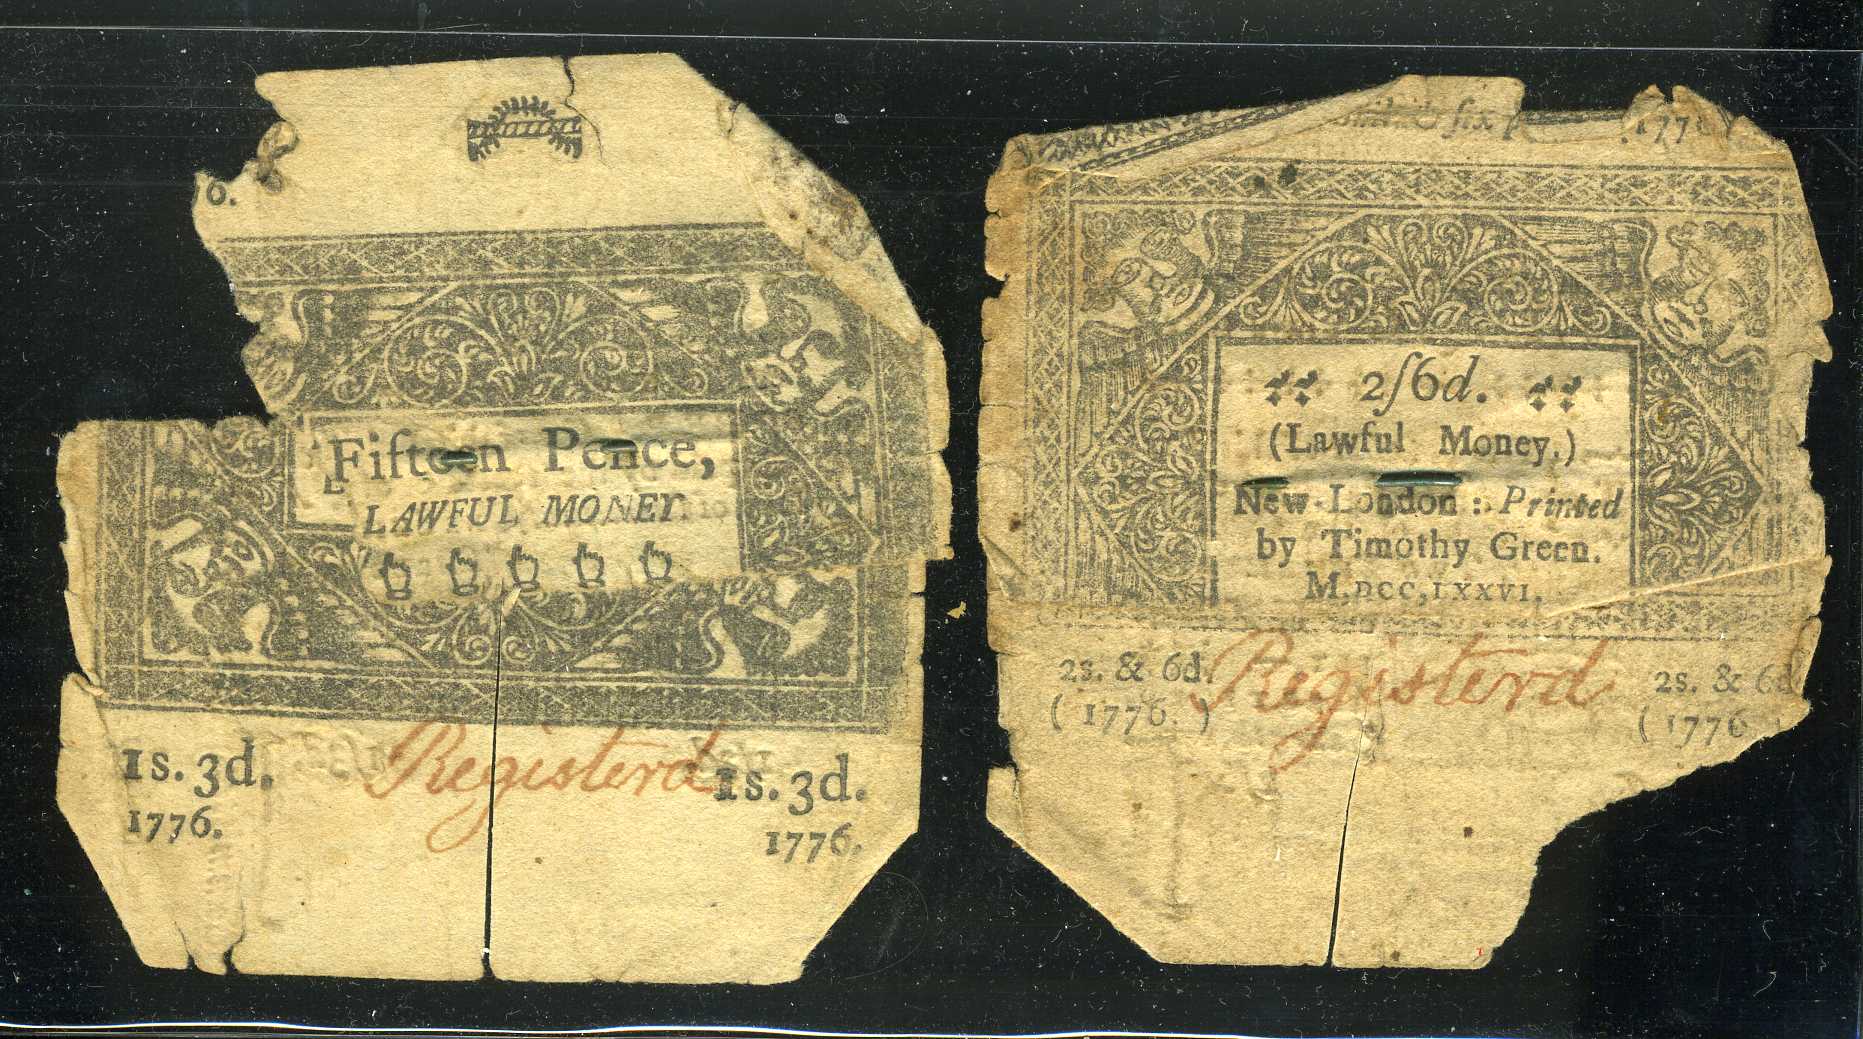 o.
Fifteen Pence,
LAWFUL MONEY.
Registerd
1s. 3d.
1776.
1s. 3d.
1776.
ſix
177
2ſ6d.
(Lawful Money.)
New-London: Printed
by Timothy Green.
M,DCC,LXXVI.
2s. & 6d.
( 1776. )
Registerd
2s. & 6d
( 1776